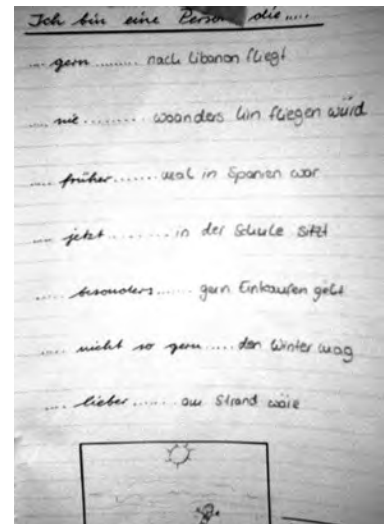 Ich bin eine Person die.....
.... gern ......... nach Libanon fliegt
.... nie ......... woanders hin fliegen würd
.... früher ....... mal in Spanien war
.... jetzt .......... in der Schule sitzt
..... besonders ...... gern Einkaufen geht
.... nicht so gern ..... den Winter mag
.... lieber ...... am Strand wäre